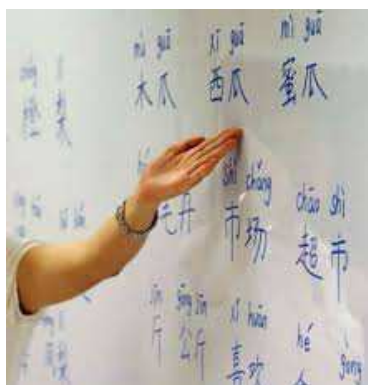 mù guā xī guā mì guā
木瓜 西瓜 蜜瓜
橙 梨
shì chǎng chāo shì
毛丹 市场 超市
jīn gōng jīn xǐ huān hé
斤 公斤 喜欢